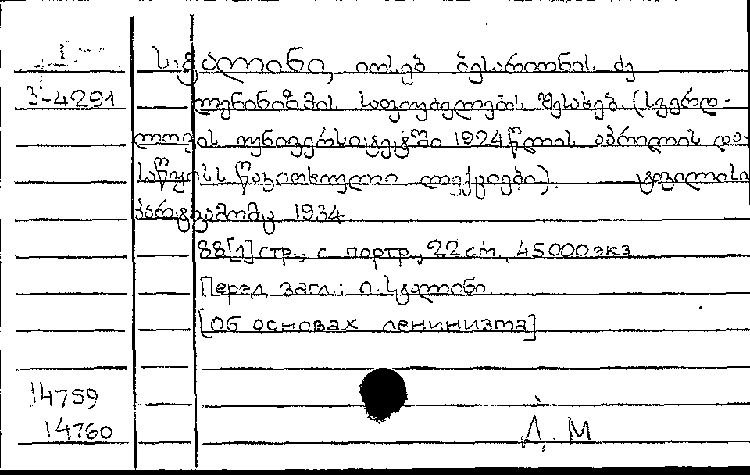 სტალინი, იოსებ ბესარიონის ძე
3-4291 ლენინიზმის საფუძვლების შესახებ. (სვერდ-
ლოვის უნივერსიტეტში 1924 წლის აპრილის და-
საწყისს წაკითხული ლექციები). ტფილისი
პარტგამომც. 1934
88[1] стр., с портр., 22 cm, 45000 экз
Перед загл.: ი. სტალინი
[Об основах ленинизма]
14759
14760 Д. М